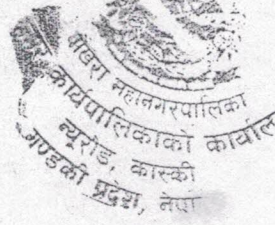 पोखरा महानगरपालिका
नगर कार्यपालिकाको कार्याल
न्यूरोड, कास्की
गण्डकी प्रदेश, नेपा